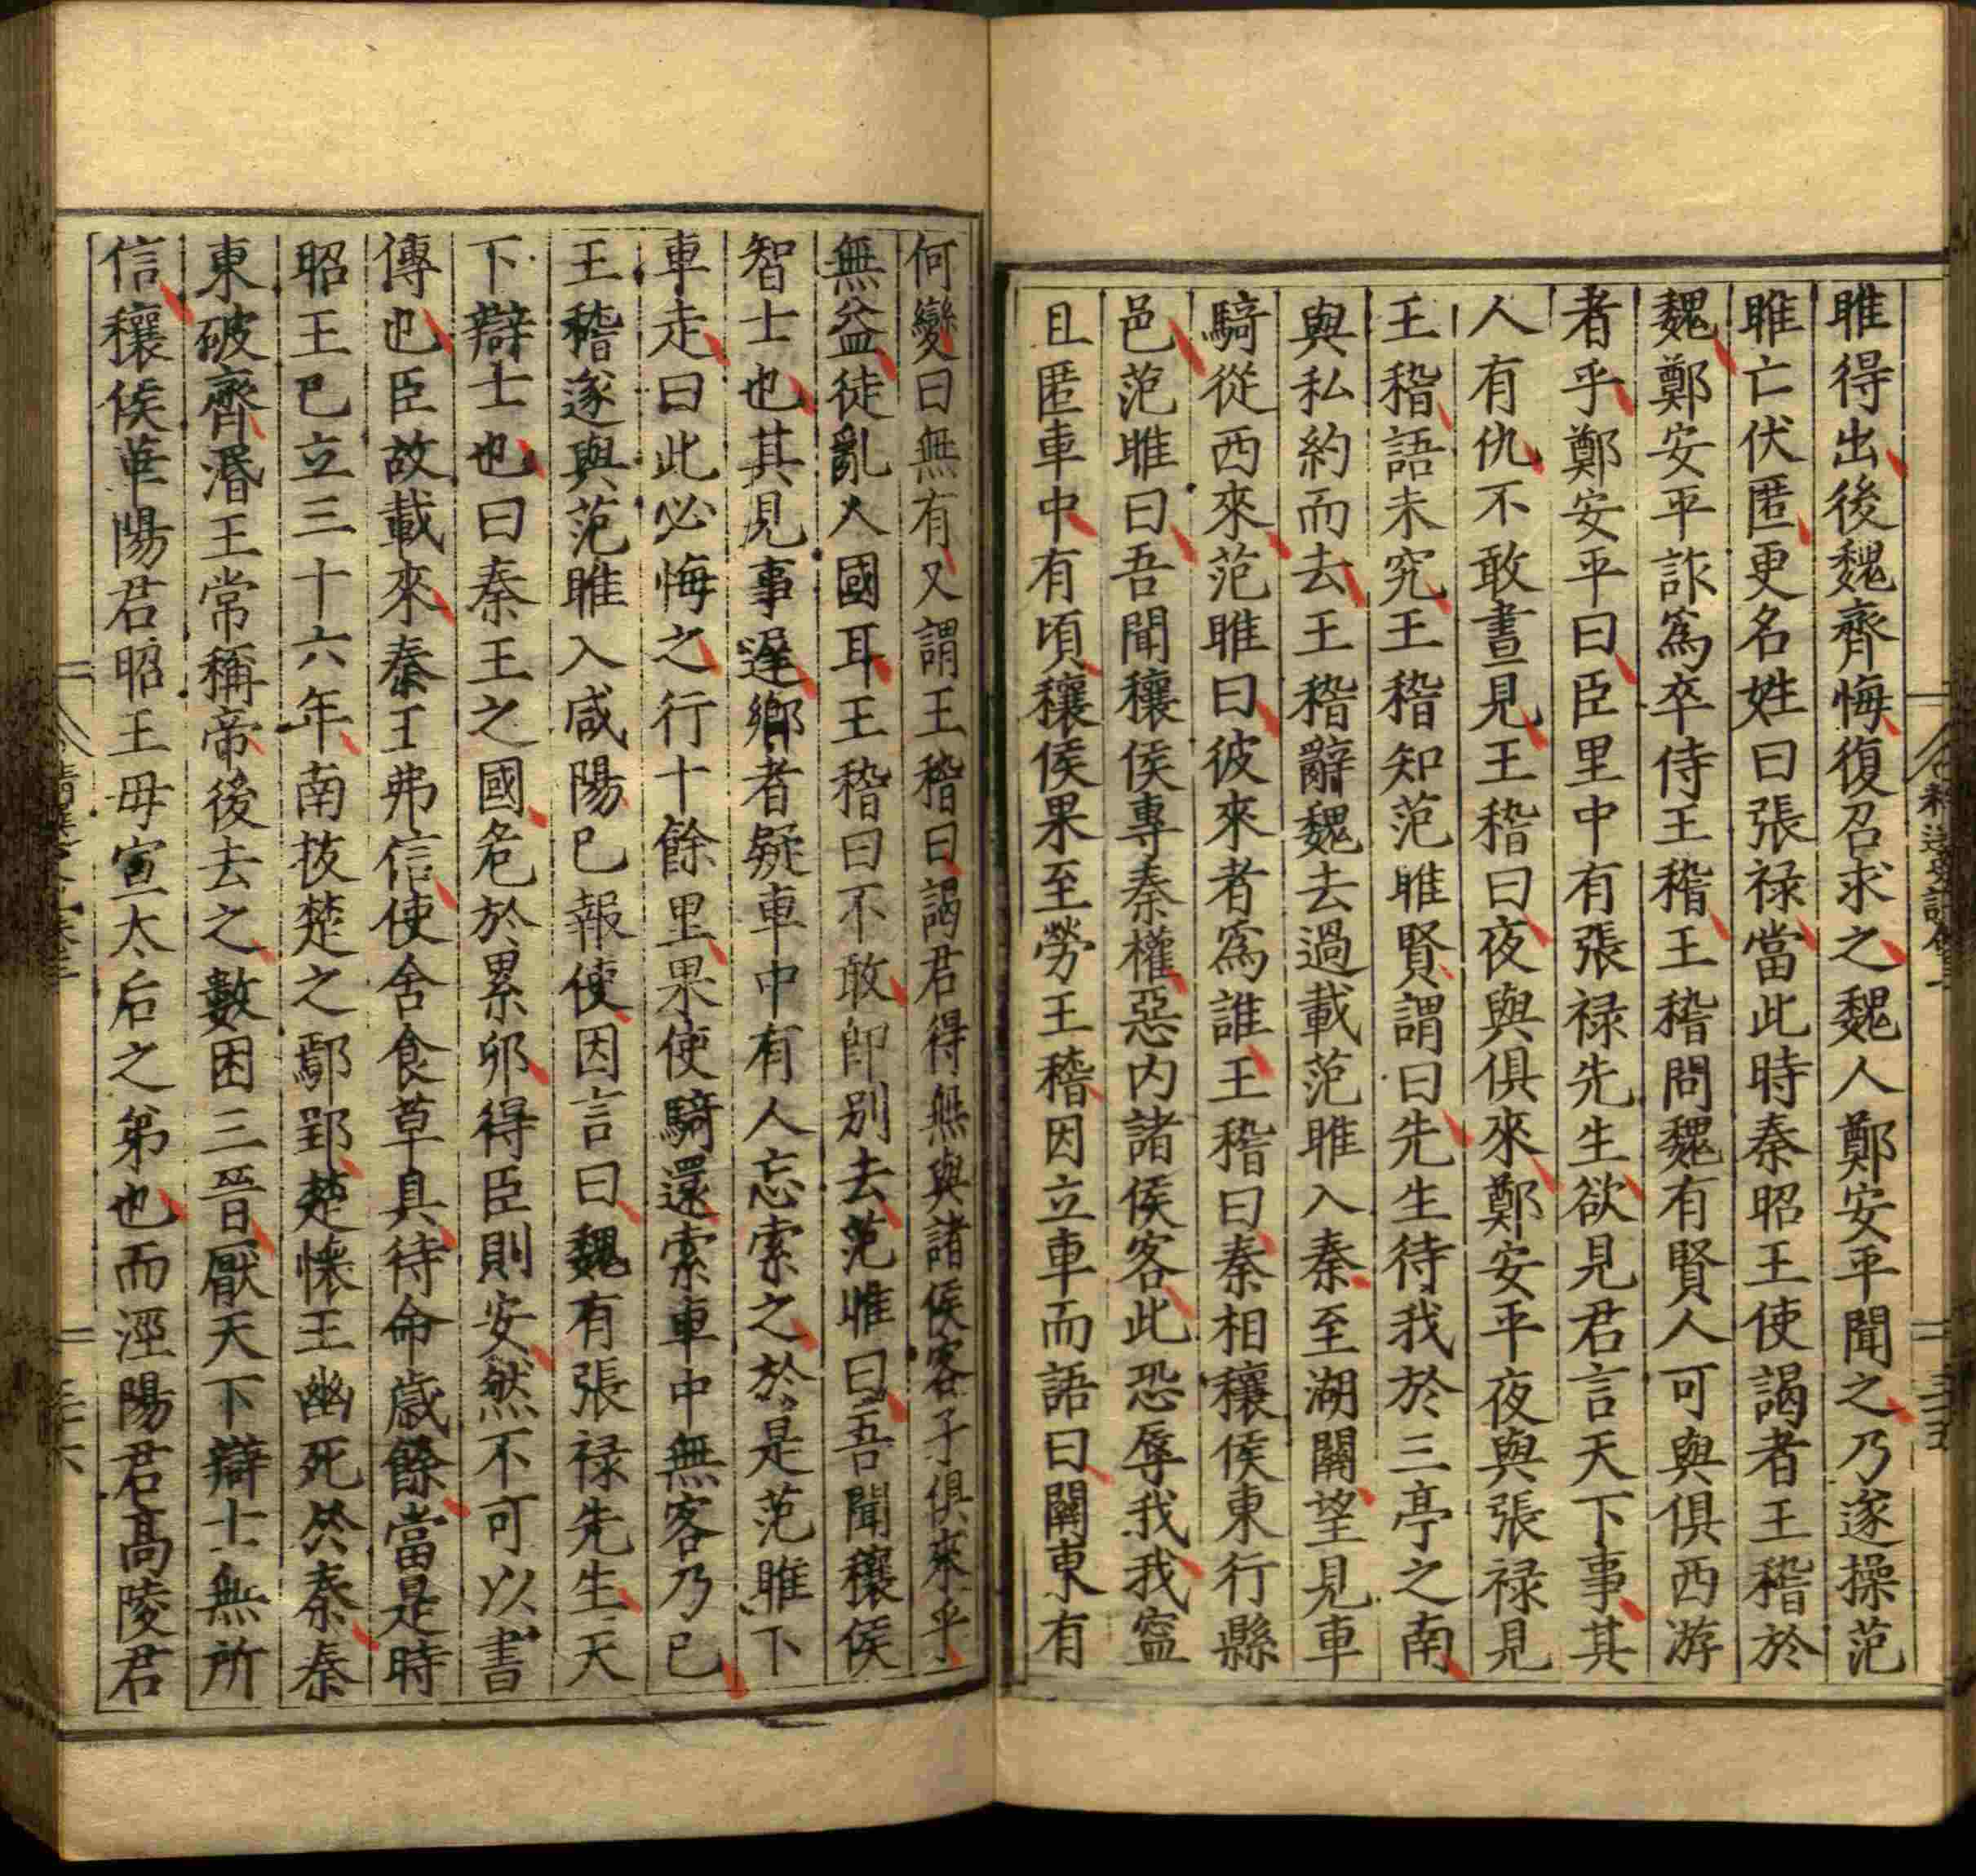 睢得出後魏齊悔復召求之魏人鄭安平聞之乃遂操范
睢亡伏匿更名姓曰張祿當此時秦昭王使謁者王稽於
魏鄭安平詐爲卒侍王稽王稽問魏有賢人可與俱西游
者乎鄭安平曰臣里中有張祿先生欲見君言天下事其
人有仇不敢晝見王稽曰夜與俱來鄭安平夜與張祿見
王稽語未究王稽知范睢賢謂曰先生待我於三亭之南
與私約而去王稽辭魏去過載范睢入秦至湖關望見車
騎從西來范睢曰彼來者爲誰王稽曰秦相穰侯東行縣
邑范睢曰吾聞穰侯專秦權惡內諸侯客此恐辱我我寧
且匿車中有頃穰侯果至勞王稽因立車而語曰關東有
何變曰無有又謂王稽曰謁君得無與諸侯客子俱來乎
無益徒亂人國耳王稽曰不敢卽別去范睢曰吾聞穰侯
智士也其見事遲鄉者疑車中有人忘索之於是范睢下
車走曰此必悔之行十餘里果使騎還索車中無客乃已
王稽遂與范睢入咸陽已報使因言曰魏有張祿先生天
下辯士也曰秦王之國危於累卵得臣則安然不可以書
傳也臣故載來秦王弗信使舍食草具待命歲餘當是時
昭王已立三十六年南拔楚之鄢郢楚懷王幽死於秦秦
東破齊湣王常稱帝後去之數困三晉厭天下辯士無所
信穰侯華陽君昭王母宣太后之弟也而涇陽君高陵君
三十五
三十六